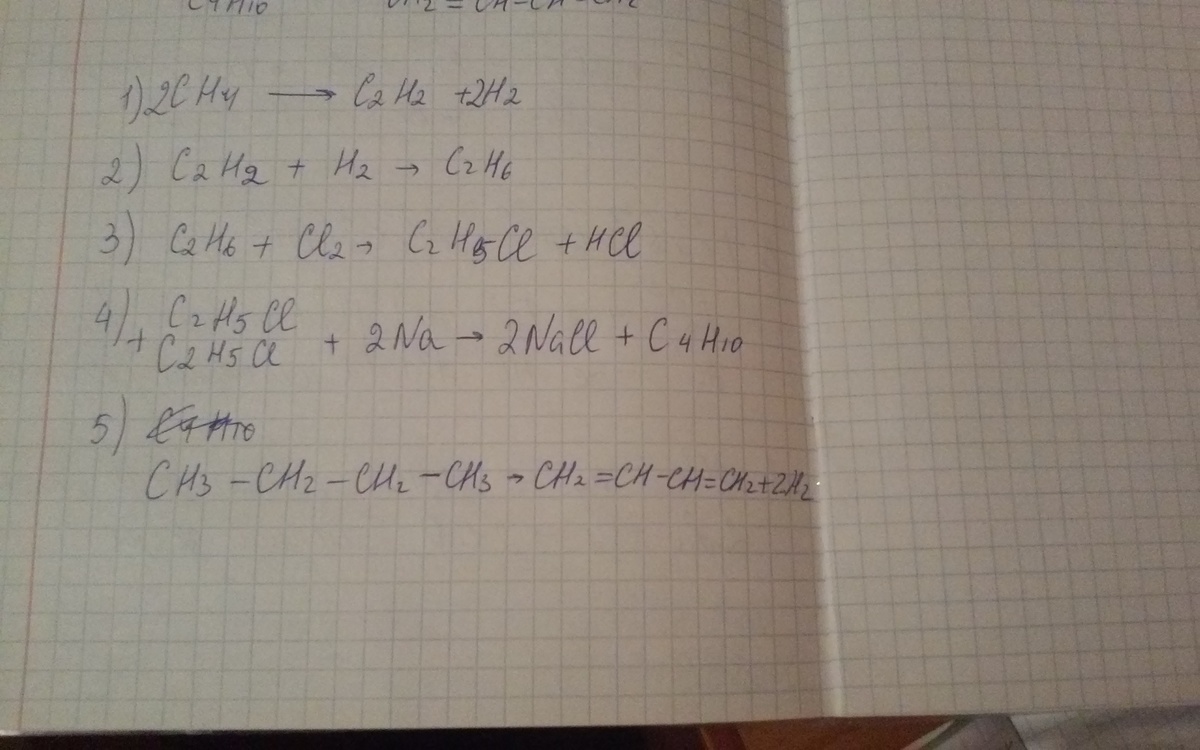 C4H10 CH2=CH-CH=CH2
1) 2CH4 ⟶ C2H2 +2H2
2) C2H2 + H2 → C2H6
3) C2H6 + Cl2 → C2H5Cl + HCl
4) C2H5Cl
+ C2H5Cl + 2Na → 2NaCl + C4H10
5) C4H10
CH3 - CH2 - CH2 - CH3 → CH2 = CH-CH=CH2+2H2